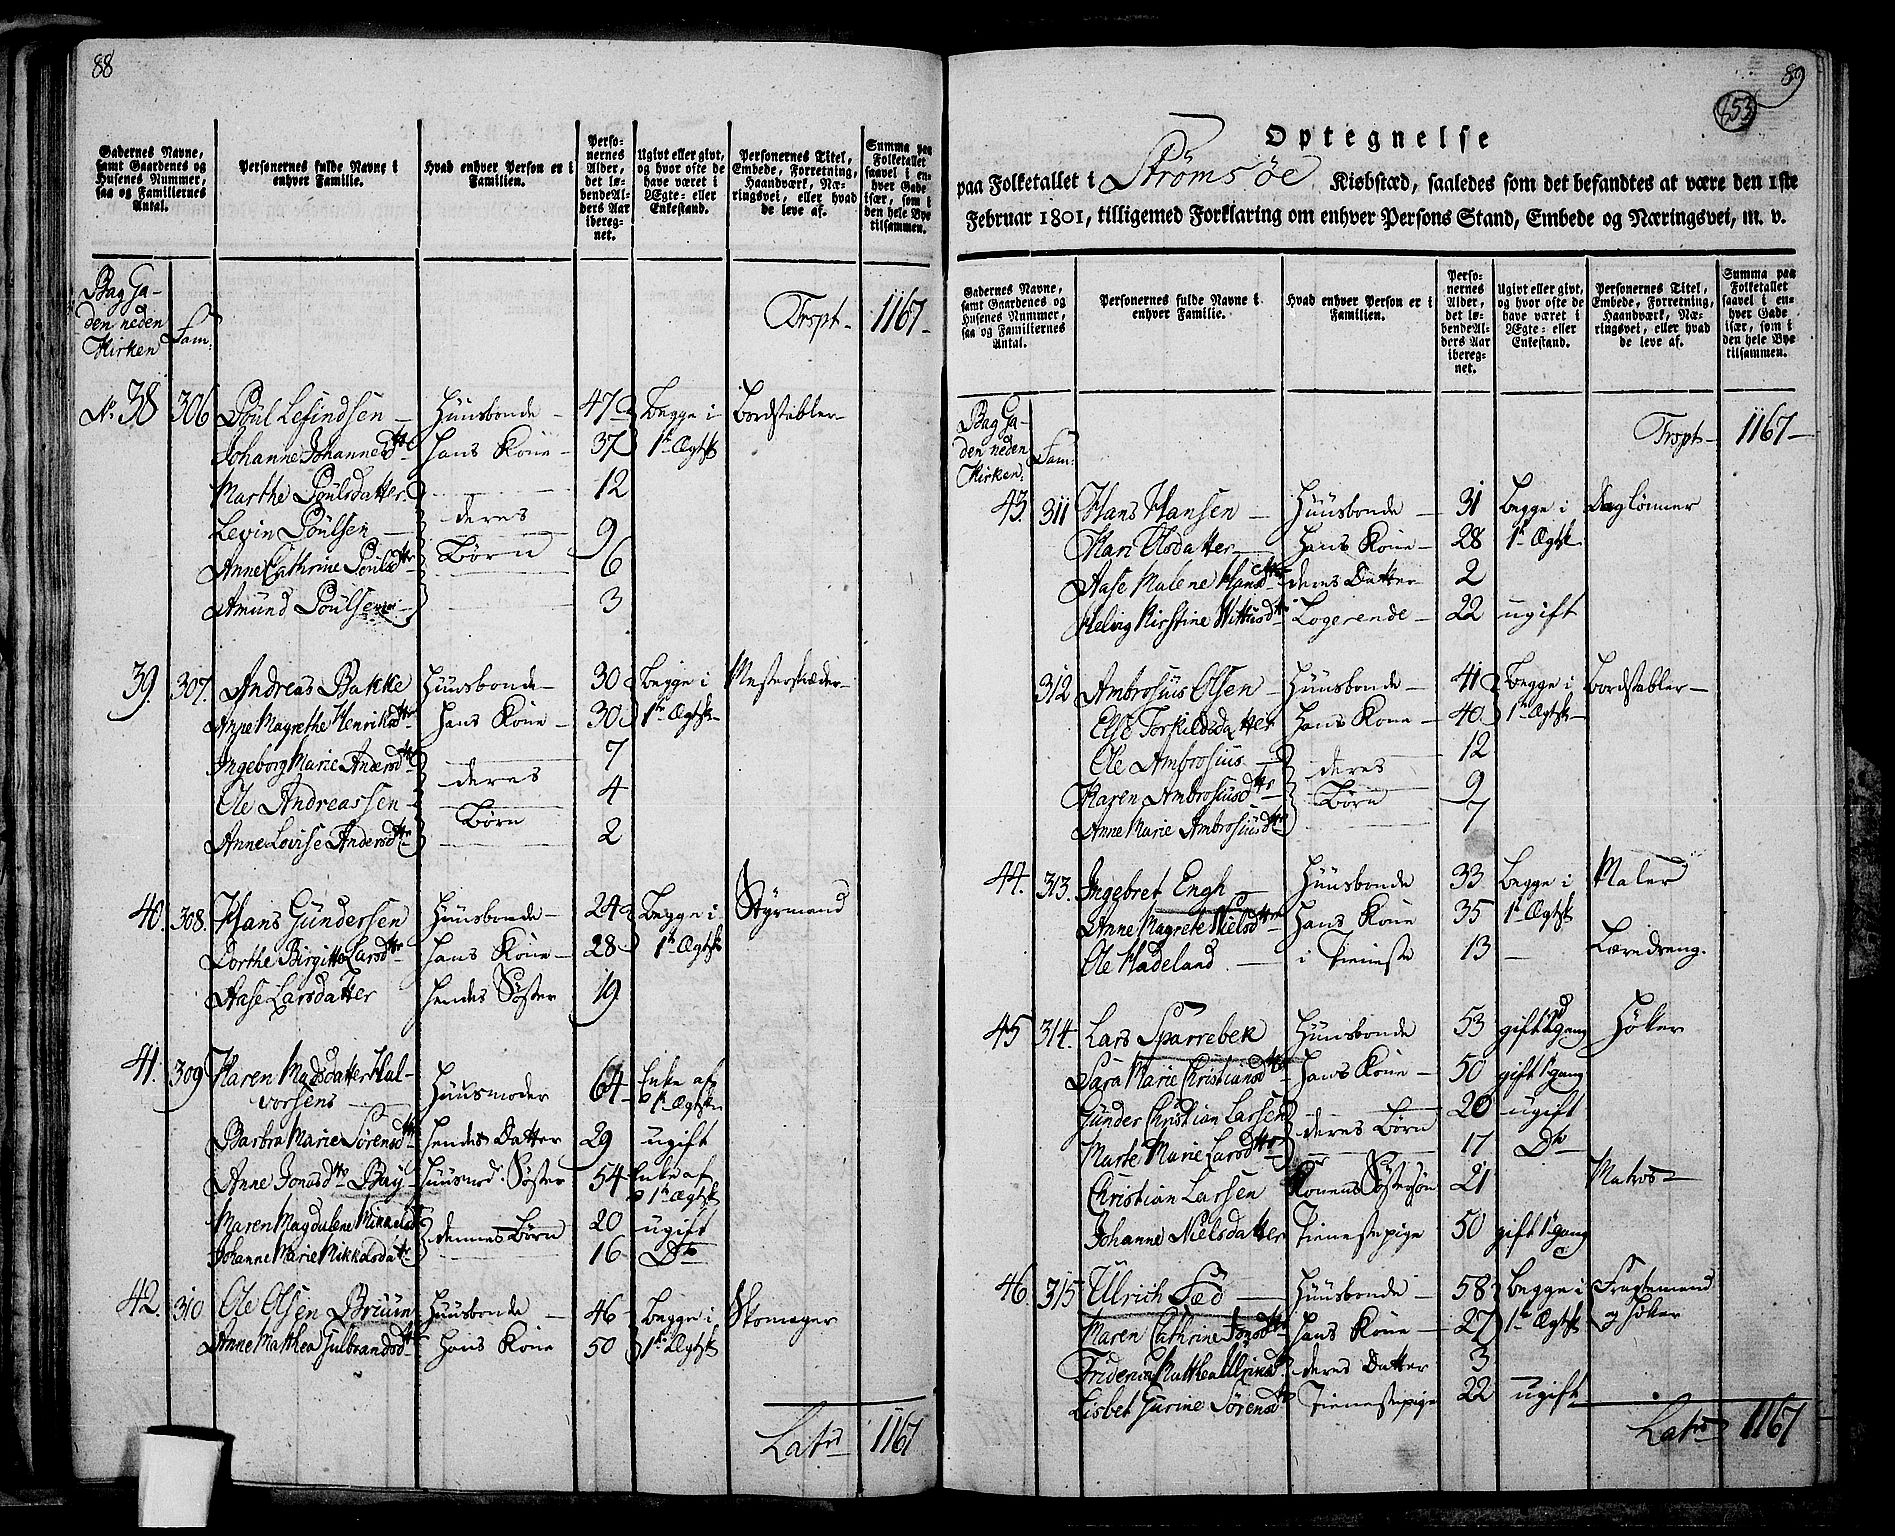 88
Gadernes Navne, samt Gaardenes og Husenes Nummer, saa og Familiernes Antal.
Personernes fulde Navne i enhver Familie.
Hvad enhver Person er i Familien.
Personernes Alder, det løbendeAlders Aar iberegnet.
Ugivt eller givt, og hvor ofte de have været i Ægte- eller Enkestand.
Personernes Titel, Embede, Forretning, Haandværk, Næringsvei, eller hvad de leve af.
Summa paa Folketallet saavel i enhver Gade især, som i den hele Bye tilsammen.
Bag Ga-
den neden Fam:
Kirken
Trspt- 1167-
No 38 306 Poul Lefindsen - Huusbonde - 47 Begge i Bordstabler-
Johanne Johannesdtr hans Kone - 37 1te Ægtsk
Marthe Poulsdatter 12
Levin Poulsen - deres 9
Anne Cathrine Poulsdtr Børn 6
Amund Poulsen 3
39. 307. Andreas Bakke Huusbonde - 30 Begge i Mesterskræder-
Anne Magrethe Henriksdtr hans Kone - 30 1te Ægtsk-
Ingeborg Marie Andersdtr 7
Ole Andreassen - deres 4
Anne Lovise Andersdtr Børn 2
40. 308. Hans Gundersen Huusbonde - 24 Begge i Styrmand
Dorthe Birgitte Larsdtr hans Kone - 28 1te Ægtsk
Aase Larsdatter hendes Søster 19
41. 309 Karen Madsdatter Hal-
vorsens Huusmoder 64 Enke af
1te Ægtsk-
Barbra Marie Sørensdtr hendes Datter 29 ugift
Anne Jonasdtr Bay- Huusmod: Søster 54 Enke af
1te Ægtsk
Maren Magdalene Mikkelsdtr dennes Børn 20 ugift
Johanne Marie Mikkelsdatter 16 Do
42. 310 Ole Olsen Bruun Huusbonde - 46 Begge i Skomager
Anne Matthea Gulbrandsdtr hans Kone 50 1te Ægtsk
Lats 1167
89
153
Optegnelse
paa Folketallet i Strømsøe Kiøbstæd, saaledes som det befandtes at være den 1ste
Februar 1801, tilligemed Forklaring om enhver Persons Stand, Embede og Næringsvei, m. v.
Gadernes Navne, samt Gaardenes og Husenes Nummer, saa og Familiernes Antal.
Personernes fulde Navne i enhver Familie.
Hvad enhver Person er i Familien.
Personernes Alder, det løbendeAlders Aar iberegnet.
Ugivt eller givt, og hvor ofte de have været i Ægte- eller Enkestand.
Personernes Titel, Embede, Forretning, Haandværk, Næringsvei, eller hvad de leve af.
Summa paa Folketallet saavel i enhver Gade især, som i den hele Bye tilsammen.
Bag Ga-
den neden Fam:
Kirken.
Trspt- 1167-
43. 311 Hans Hansen - Huusbonde - 31 Begge i Daglønner
Kari Olsdatter - hans Kone - 28 1te Ægtsk.
Aase Malene Hansdtr deres Datter 2
Helvig Kirstine Wittusdtr Logerende - 22 ugift
312 Ambrosius Olsen - Huusbonde - 41 Begge i Bordstabler-
Else Torkildsdatter hans Kone - 40 1te Ægtsk-
Ole Ambrosius - deres 12
Karen Ambrosiusdtr Børn 9
Anne Marie Ambrosiusdtr 7
44. 313. Ingebret Engh - Huusbonde 33 Begge i Maler
Anne Magrete Nielsdtr hans Kone 35 1te Ægtsk
Ole Hadeland - i Tieneste 13 - Læredreng.
45 314. Lars Sparrebek Huusbonde 53 gift 2d gang Høker
Sara Marie Christiansdtr hans Kone - 50 gift 1te gang
Gunder Christian Larsen deres Børn 20 ugift
Marte Marie Larsdtr 17 Do
Christian Larsen Konens Søstersøn 21 Matros-
Johanne Nielsdatter Tienestepige 50 gift 1te gang
46. 315 Ullrich Sæd - Huusbonde - 58 Begge i Fragtemand
Maren Cathrine hans Kone - 27 1te Ægtsk og Høker
Friderica Mathea deres Datter 3
Lisbet Gurine Sørensdtr Tienestepige 22 ugift
Lats 1167